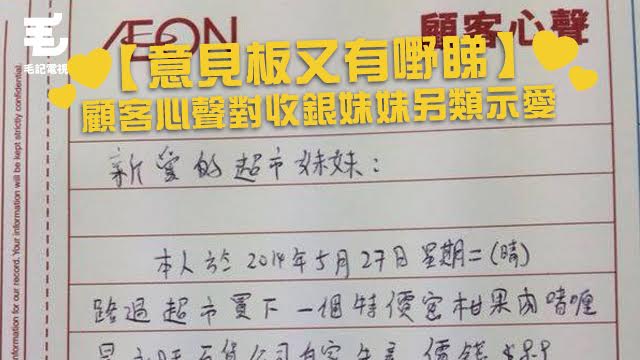 毛記電視
ÆON
顧客心聲
【意見板又有嘢睇】
顧客心聲對收銀妹妹另類示愛
新愛的超市妹妹：
本人於2014年5月27日星期二(晴)
路過超市買下一個特價蜜柑果肉啫喱
for our record. Your information will be kept strictly confidential.